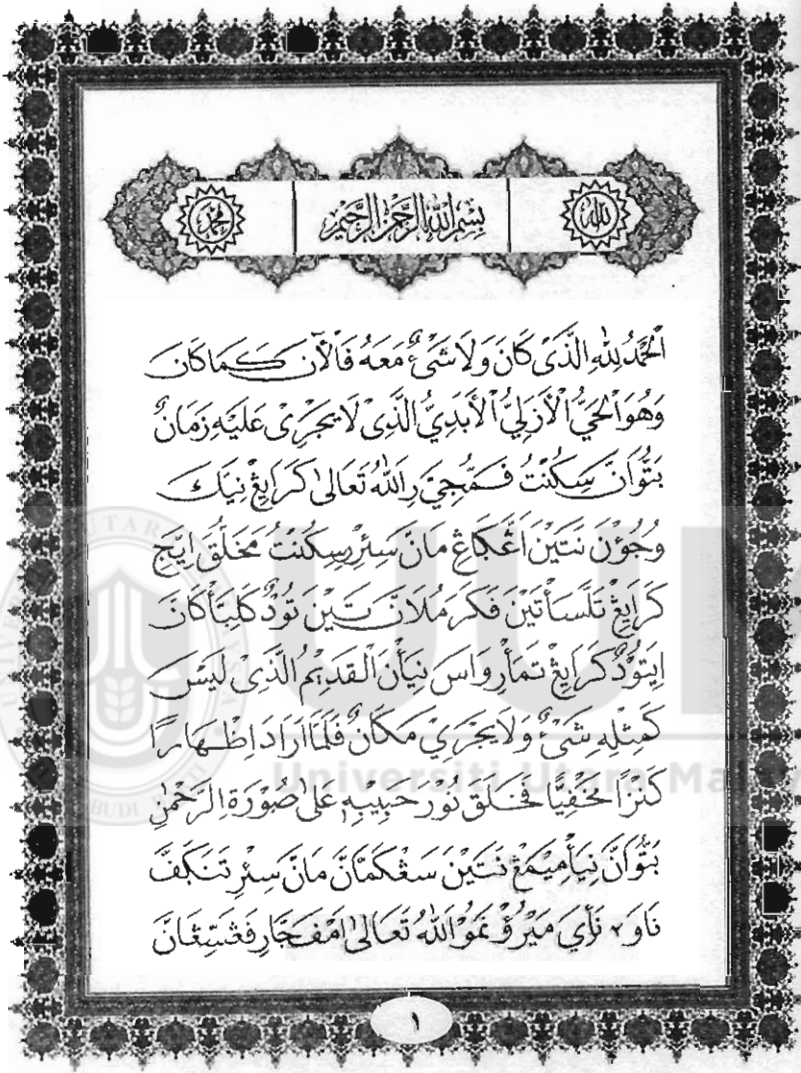 الله بِسْمِ اللهِ الرَّحْمٰنِ الرَّحِيْمِ محمد
اَلْحَمْدُ لِلّٰهِ الَّذِىْ كَانَ وَلَا شَىْءٌ مَعَهُ فَالْاٰنَ كَمَا كَانَ
وَهُوَ الْحَيُّ الْأَزَلِيُّ الْأَبَدِيُّ الَّذِىْ لَا يَجْرِىْ عَلَيْهِ زَمَانٌ
بَتُّوَانَّ سِكُنْتُ فَمُّجِيْ رِ اللهُ تَعَالىٰ كَرَايِڠْ نِيَكَ
وُجُوْنَ نَتَيْنَ اَڠْكَاڠْ مَانَ سِئْرِ سِكُنْتُ مَخَلُّقَ اِيَّجِ
كَرَايِڠْ تَلَّسَأْتَيْنَ فَكَرَمُلَانَّ تَيْنَ تُوْدٌ كَلِبَأْكَانَ
اِيَتُوْدٌ كَرَايِڠْ تَمَأْرِوَاسَ نِيَأْنَ الْقَدِيْمُ الَّذِىْ لَيْسَ
كَمِثْلِهِ شَىْءٌ وَلَا يَجْرِيْ مَكَانٌ فَلَمَّا اَرَادَ اِظْهَارًا
كَنْزًا مَخْفِيًّا فَخَلَقَ نُوْرَ حَبِيْبِهِ عَلىٰ صُوْرَةِ الرَّحْمٰنِ
بَتُّوَانَّ نِيَأْمِيْمَڠْ نَتَيْنَ سَڠْكَمَّانَّ مَانَّ سِئْرِ تَنَكَفَّ
نَاوَ٢ نَأَيَ مَيْرُؤْ نَمُوْ اللهُ تَعَالىٰ اَمْفَجَّارِ فَڠَسِّڠَانَّ
١
UUM
Universiti Utara Malaysia